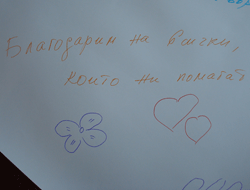 Благодарим на всички,
които ни помагат